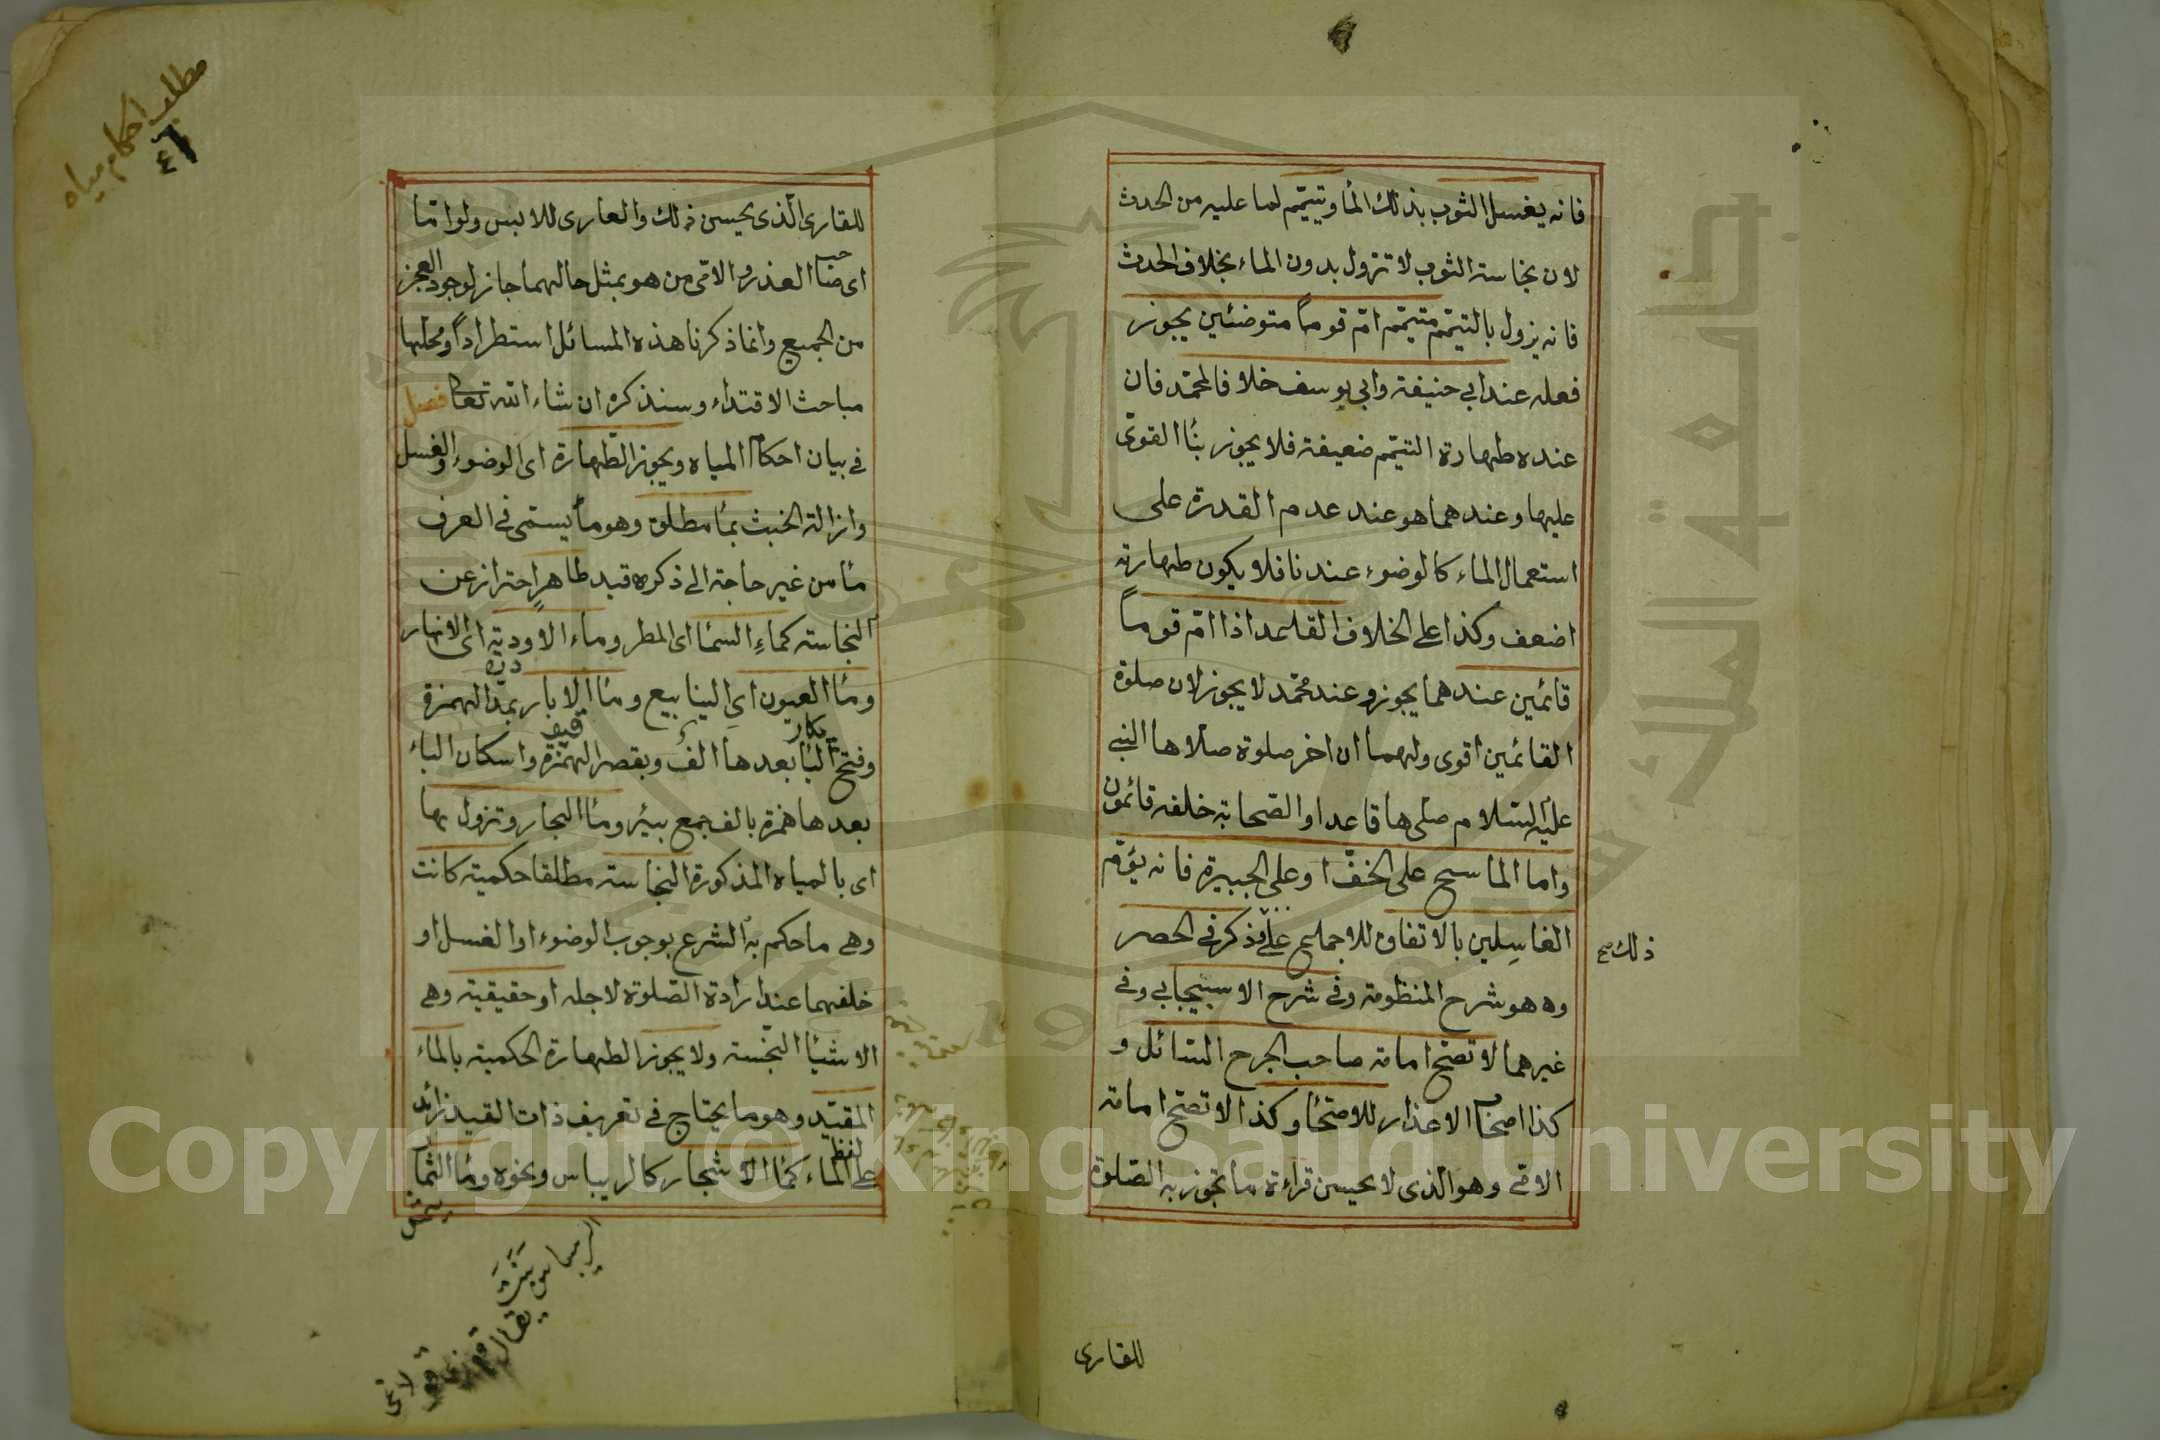 فانه يغسل الثوب بذلك الماء ويتيمّم لما عليه من الحدث
لان نجاسة الثوب لا تزول بدون الماء بخلاف الحدث
فانه يزول بالتيمّم متيمّم امّ قوماً متوضئين يجوز
فعله عند ابي حنيفة وابي يوسف خلافا لمحمّد فان
عنده طهارة التيمّم ضعيفة فلا يجوز بناء القوىّ
عليها وعندهما هو عند عدم القدرة على
استعمال الماء كالوضوء عندنا فلا يكون طهارته
اضعف وكذا على الخلاف القاعد اذا امّ قوماً
قائمين عندهما يجوز وعند محمّد لا يجوز لان صلوة
القائمين اقوى ولهما ان اخر صلوة صلّاها النبي
عليه السّلام صلّى ها قاعدا والصّحابة خلفه قائمون
واما الماسح على الخفّ او على الجبيرة فانه يؤمّ
الغاسلين بالاتفاق للاجماع على ذكر في الحصر
ذلك صح
وه هو شرح المنظومة وفي شرح الاسبيجابي وفي
غيرهما لا تصحّ امامة صاحب الجرح السّائل و
كذا اصحاب الاعذار للاصحّاء وكذا لا تصحّ امامة
الامّي وهو الذي لا يحسن قراءة ما تجوز به الصّلوة
للقارى
مطلب احكام مياه
٤٦
للقارى الّذى يحسن ذلك والعارى للابس ولو امّا
اى صاحب العذر والامّي من هو بمثل حالهما جاز لوجود العجز
من الجميع وانما ذكرنا هذه المسائل استطراداً ومحلّها
مباحث الاقتداء وسنذكره ان شاء الله تعا فصل
في بيان احكام المياه ويجوز الطّهارة اى الوضوء والغسل
وازالة الخبث بماء مطلق وهو ما يسمّى في العرف
ماء من غير حاجة الى ذكره قيد طاهر احتراز عن
النجاسة كماءِ السماء اى المطر وماء الاودية اى الانهار
دره
وماء العيون اى الينابيع وماء الابار بمدّ الهمزة
وفتح الباء بعدها الف وبقصر الهمزة واسكان الباء
بعدها همزة بالف جمع بئر وماء البحار وتزول بها
اى بالمياه المذكورة النجاسة مطلقا حكمية كانت
وهي ما حكم به الشرع بوجوب الوضوء او الغسل او
خلفهما عند ارادة الصّلوة لاجله او حقيقية وهي
الاشياء النّجسة ولا يجوز الطهارة الحكمية بالماء
المقيّد وهو ما يحتاج في تعريف ذات القيد زائد
على لفظ الماء كماء الاشجار كالريباس ونحوه وماء الثمار